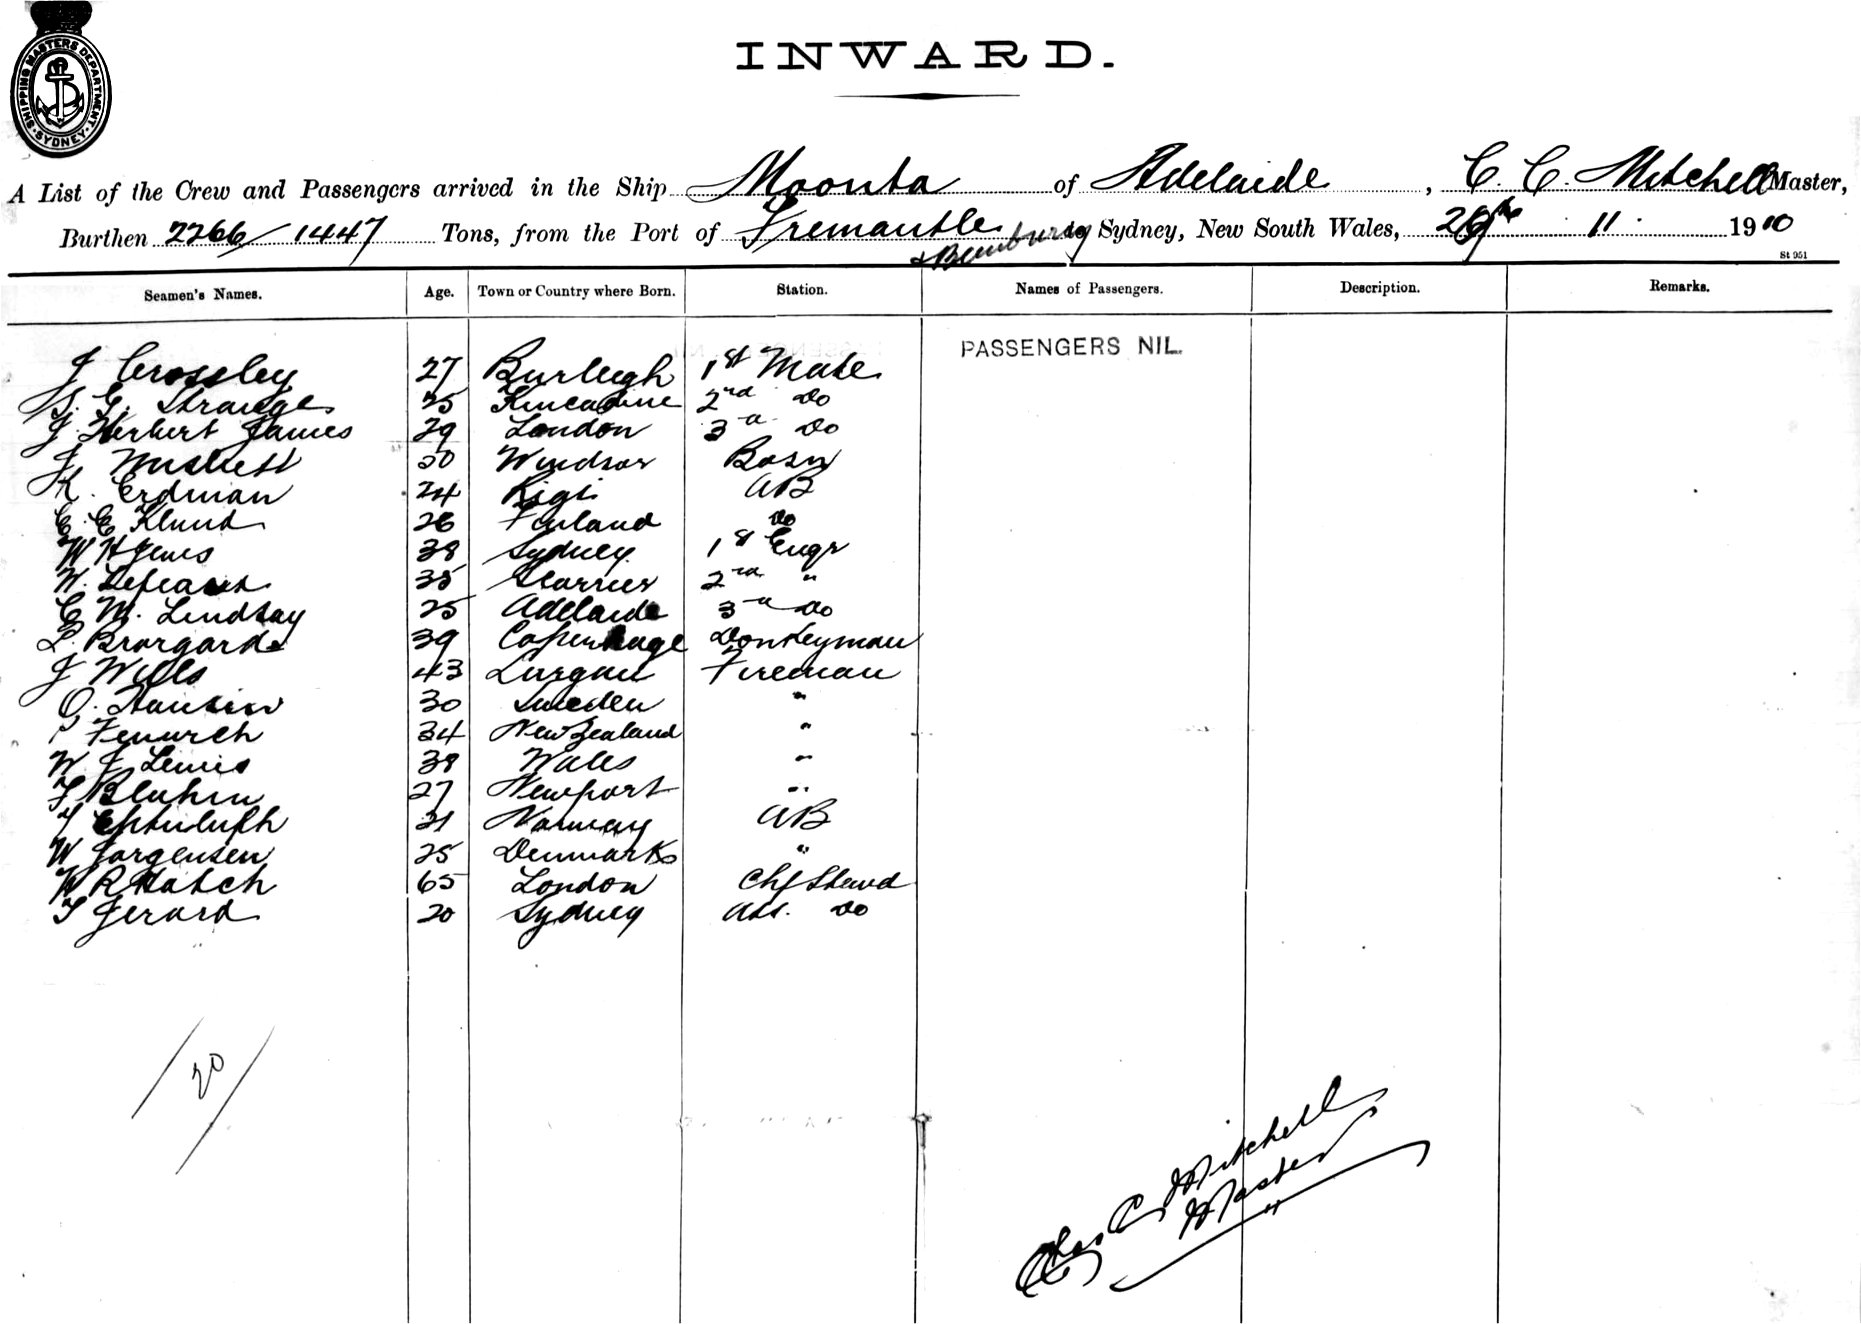 SHIPPING MASTERS DEPARTMENT
SYDNEY
INWARD.
A List of the Crew and Passengers arrived in the Ship Moonta of Adelaide, C. C. Mitchell Master,
Burthen 2266/1447 Tons, from the Port of Fremantle & Bunbury to Sydney, New South Wales, 11. 1910
St 951
Seamen's Names. Age. Town or Country where Born. Station. Names of Passengers. Description. Remarks.
PASSENGERS NIL.
J Crossley 27 Burleigh 1st Mate
G. Strange 25 Kincadine 2nd Do
J. Herbert James 29 London 3rd Do
J. Windsor Bosn
K. Erdman 24 Riga AB
C. E Klund 26 Finland Do
W H Jones 38 Sydney 1st Engr
W. 35 2nd "
C M. Lindsay 25 Adelaide 3rd Do
L. Brorgard 39 Copenhage Donkeyman
J Wills 43 Lurgan Fireman
O. Hansen 30 Sweden "
Fenwich 34 New Zealand "
W J Lewis 38 Wales "
F Bluhm 27 Newport "
21 Norway AB
W Jorgensen 25 Denmark "
W R Hatch 65 London Chf Stewd
T Gerard 20 Sydney Ass. Do
/20/
Chas C Mitchell
Master